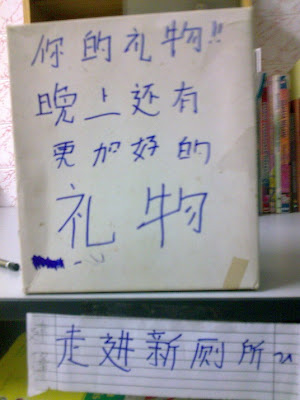 你的礼物!!
晚上还有
更加好的
礼物
走进新厕所